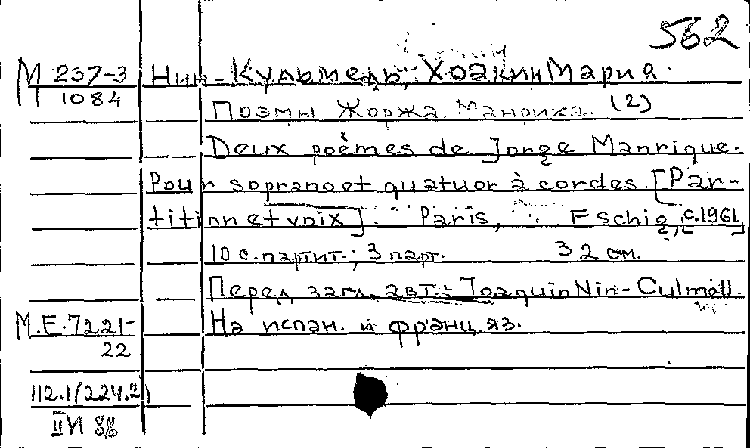 562
М 237-3 Нин-Кульмель, Хоакин Мария.
1084
Поэмы Жоржа Манрика. (2)
Deux poèmes de Jorge Manrique.
Pour soprano et quatuor à cordes [Par-
tition et voix]. Paris, Eschig, c.1961
10 с. партит.; 3 парт. 32 см.
Перед загл. авт.: Joaquin Nin-Culmell
M.E.7221- На испан. и франц. яз.
22
112.1(224.2)
88